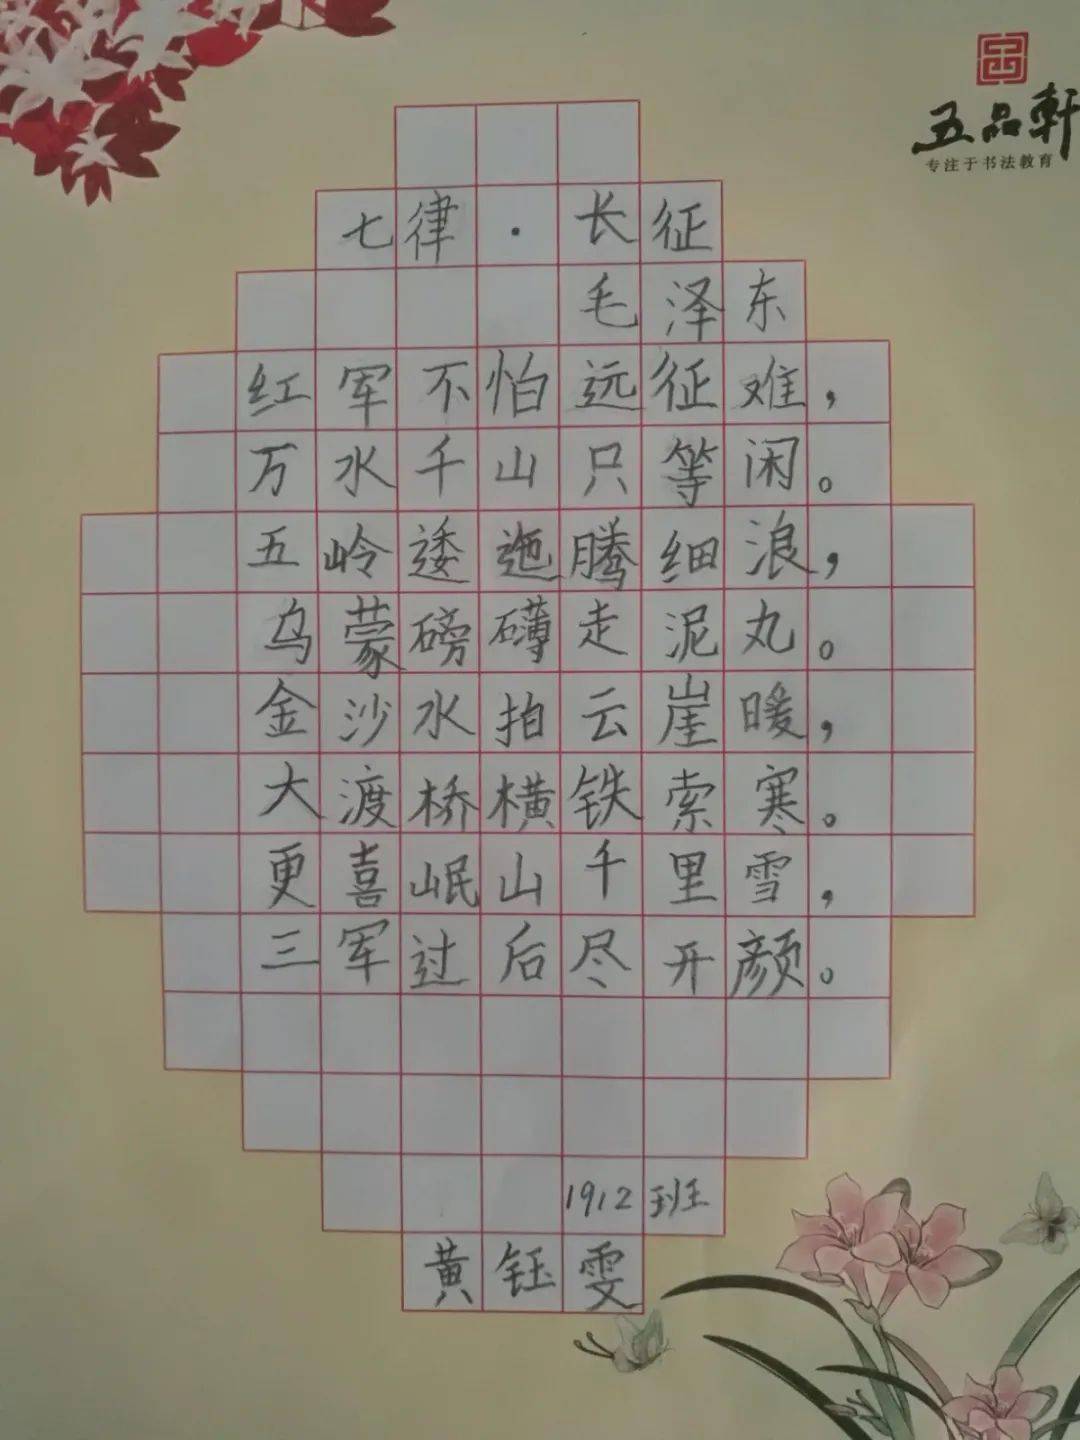 五品軒
专注于书法教育
七律·长征
毛泽东
红军不怕远征难，
万水千山只等闲。
五岭逶迤腾细浪，
乌蒙磅礴走泥丸。
金沙水拍云崖暖，
大渡桥横铁索寒。
更喜岷山千里雪，
三军过后尽开颜。
1912班
黄钰雯